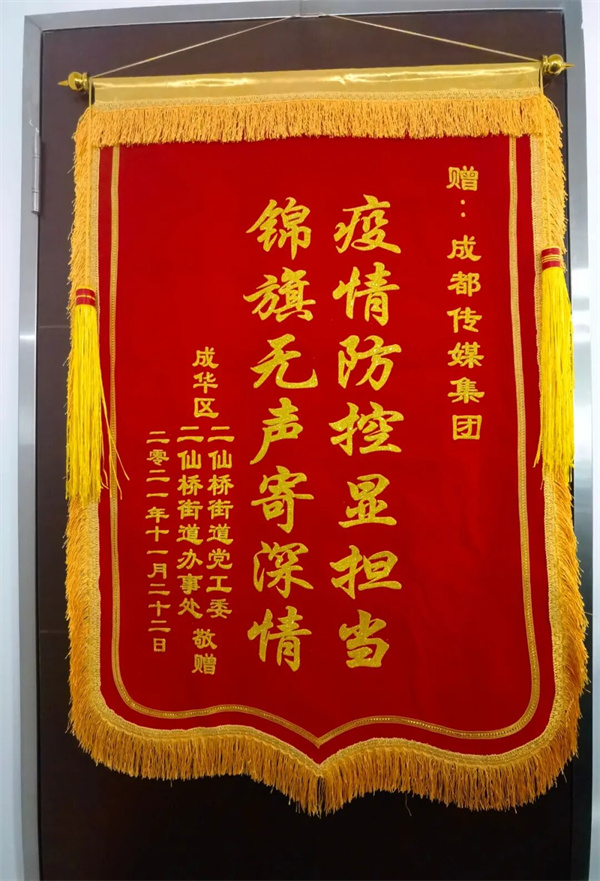 赠：成都传媒集团
疫情防控显担当
锦旗无声寄深情
成华区
二仙桥街道党工委
二仙桥街道办事处
敬赠
二零二一年十一月二十二日